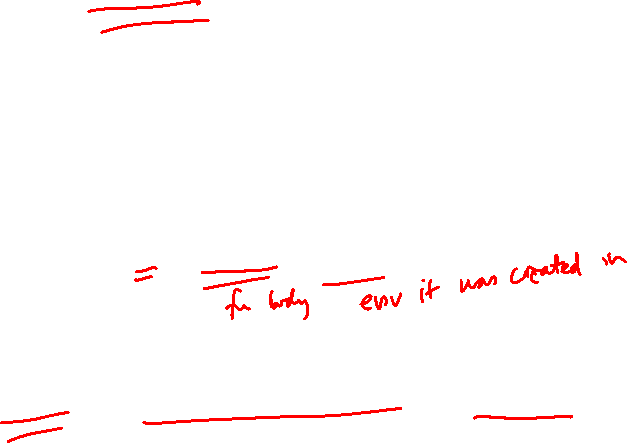 = fn body env it was created in